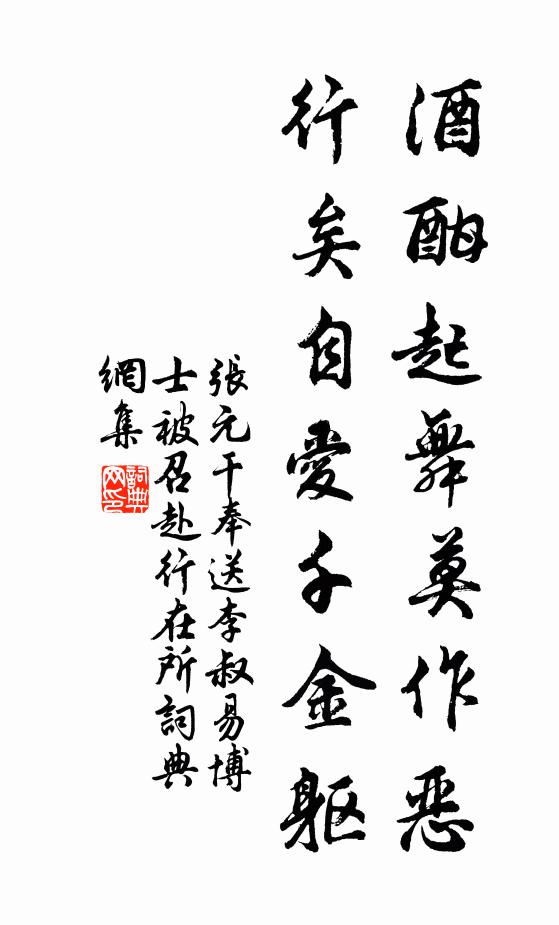 酒酣起舞莫作惡
行矣自愛千金軀
張元干奉送李叔易博
士被召赴行在所詞典
網集
詞典
網印